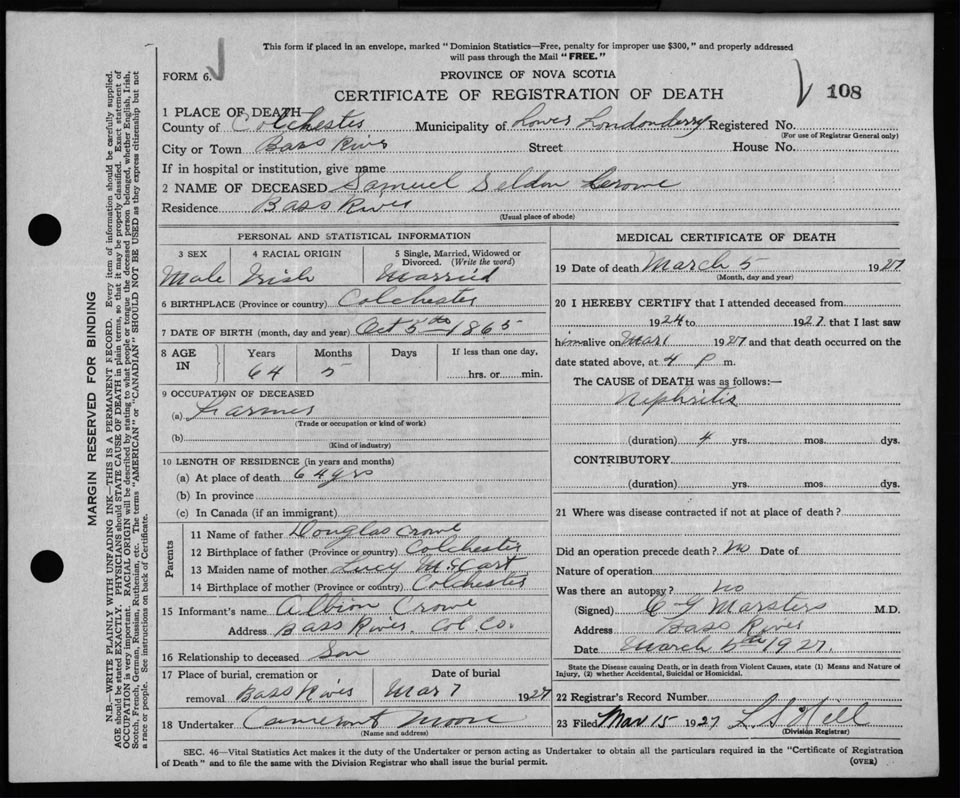 This form if placed in an envelope, marked "Dominion Statistics—Free, penalty for improper use $300," and properly addressed
will pass through the Mail "FREE."
FORM 6.
PROVINCE OF NOVA SCOTIA
CERTIFICATE OF REGISTRATION OF DEATH
108
1 PLACE OF DEATH—
County of Colchester Municipality of Lower Londonderry Registered No.
(For use of Registrar General only)
City or Town Bass River Street House No.
If in hospital or institution, give name
2 NAME OF DECEASED Samuel Seldon Crowe
Residence Bass River
(Usual place of abode)
PERSONAL AND STATISTICAL INFORMATION
3 SEX 4 RACIAL ORIGIN 5 Single, Married, Widowed or
Divorced. (Write the word)
Male Irish Married
6 BIRTHPLACE (Province or country) Colchester
7 DATE OF BIRTH (month, day and year) Oct 5th 1865
8 AGE IN Years Months Days If less than one day,
64 5 hrs. or min.
9 OCCUPATION OF DECEASED
(a) Farmer
(Trade or occupation or kind of work)
(b)
(Kind of industry)
10 LENGTH OF RESIDENCE (in years and months)
(a) At place of death 64 yrs
(b) In province
(c) In Canada (if an immigrant)
Parents
11 Name of father Douglas Crowe
12 Birthplace of father (Province or country) Colchester
13 Maiden name of mother Lucy McCart
14 Birthplace of mother (Province or country) Colchester
15 Informant's name Albion Crowe
Address Bass River. Col Co.
16 Relationship to deceased Son
17 Place of burial, cremation or Date of burial
removal Bass River Mar 7 1927
18 Undertaker Cameron & Moore
(Name and address)
MEDICAL CERTIFICATE OF DEATH
19 Date of death March 5 1927
(Month, day and year)
20 I HEREBY CERTIFY that I attended deceased from
1924 to 1927 that I last saw
him alive on Mar 1 1927 and that death occurred on the
date stated above, at 4 p. m.
The CAUSE of DEATH was as follows:—
Nephritis
(duration) 4 yrs. mos. dys.
CONTRIBUTORY
(duration) yrs. mos. dys.
21 Where was disease contracted if not at place of death?
Did an operation precede death? No Date of
Nature of operation
Was there an autopsy? no
(Signed) C G Marsters M.D.
Address Bass River
Date March 5th 1927.
State the Disease causing Death, or in death from Violent Causes, state (1) Means and Nature of
Injury, (2) whether Accidental, Suicidal or Homicidal.
22 Registrar's Record Number
23 Filed Mar 15 1927 L S Hill
(Division Registrar)
SEC. 46—Vital Statistics Act makes it the duty of the Undertaker or person acting as Undertaker to obtain all the particulars required in the "Certificate of Registration
of Death" and to file the same with the Division Registrar who shall issue the burial permit.
(OVER)
MARGIN RESERVED FOR BINDING
N.B.—WRITE PLAINLY WITH UNFADING INK—THIS IS A PERMANENT RECORD. Every item of information should be carefully supplied.
AGE should be stated EXACTLY. PHYSICIANS should STATE CAUSE OF DEATH in plain terms, so that it may be properly classified. Exact statement of
OCCUPATION is very important. RACIAL ORIGIN will be described by stating to what people or tongue the deceased person belonged, whether English, Irish,
Scotch, French, German, Russian, Ruthenian, etc. The terms "AMERICAN" or "CANADIAN" SHOULD NOT BE USED as they express citizenship but not
a race or people. See instructions on back of Certificate.